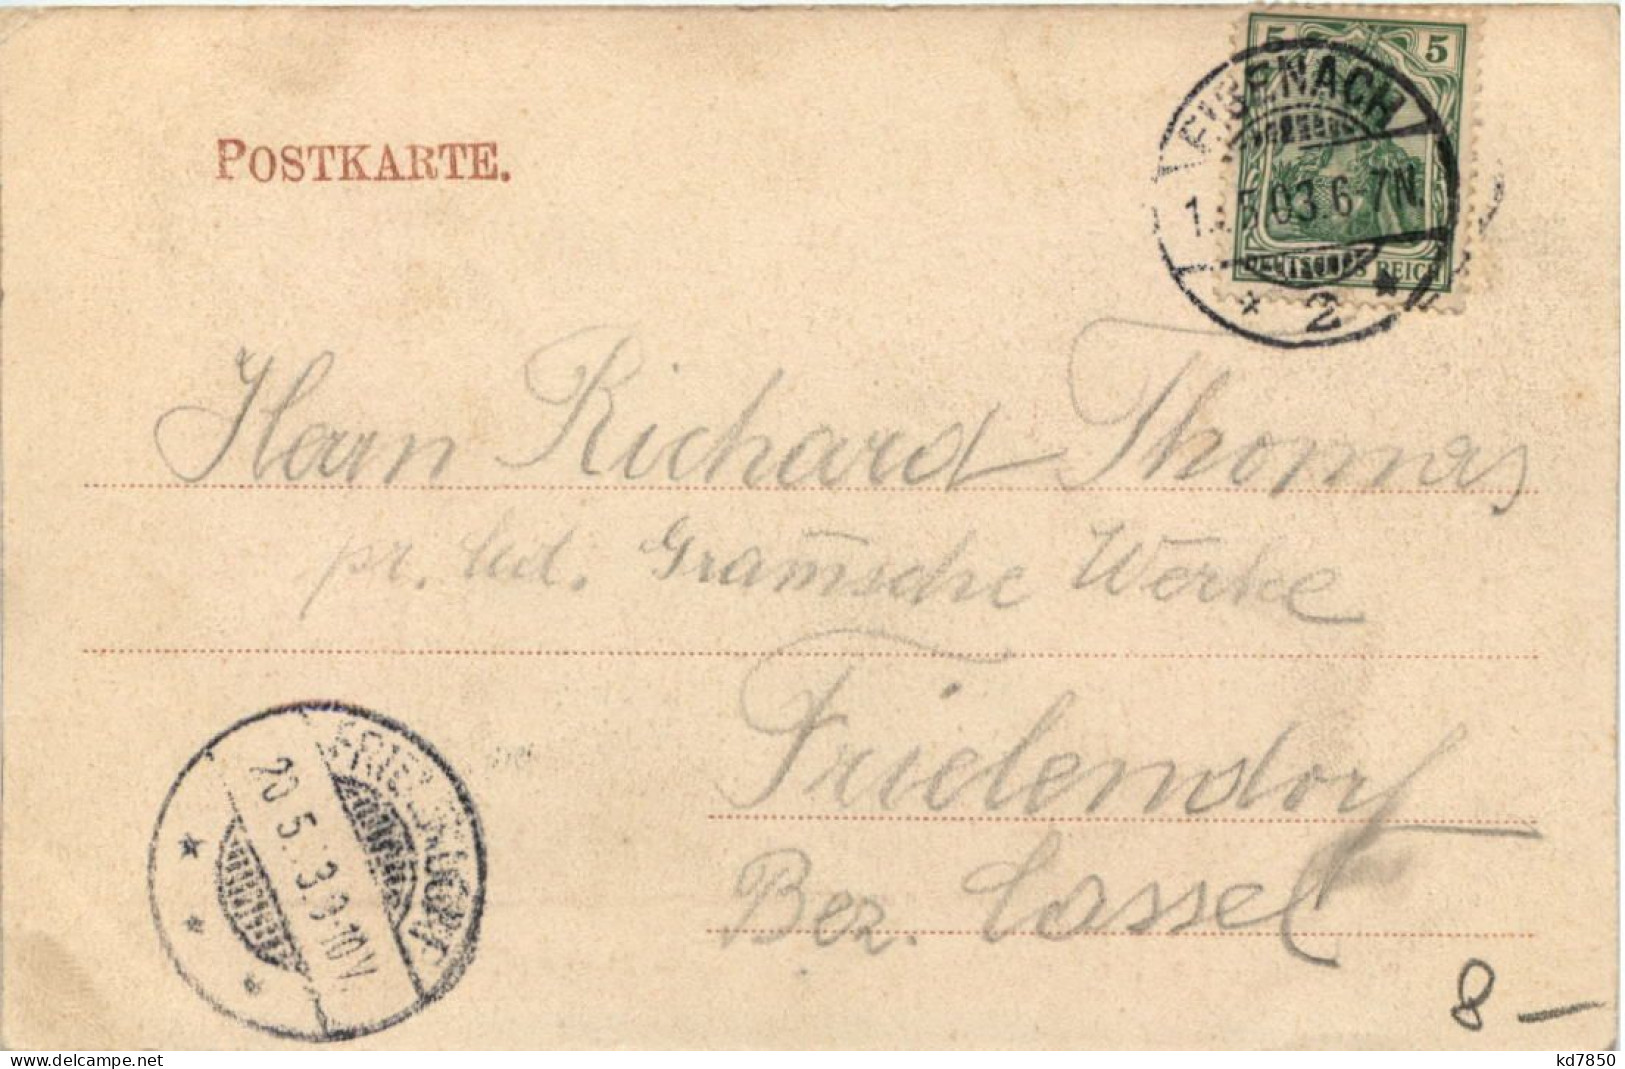 POSTKARTE.
5 5
EISENACH
5.03.6-7N.
* 2 *
DEUTSCHES REICH
Herrn Richard Thomas
pr. Gramsche Werke
Frielendorf
Bez. Cassel
FRIELENDORF
20.5.3.9-10V.
8 –
kd7850